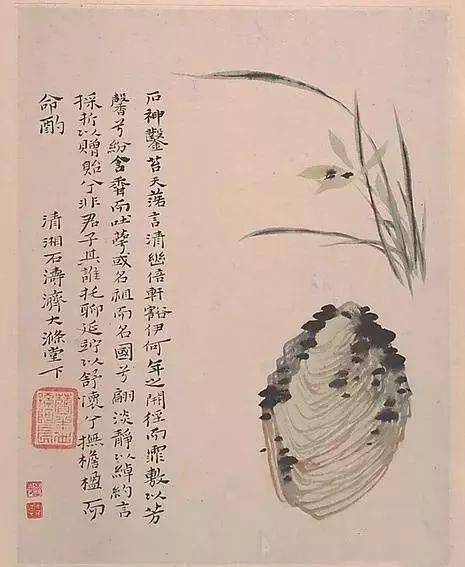 石神鑿苔天蕩言清幽倍軒豁伊何年之開徑而霏敷以芳
馨兮紛含霽而吐萼或名祖而名國兮翩淡靜以綽約言
採折以贈貽兮非君子其誰托聊延竚以舒懷兮撫檐楹而
命酌
清湘石濤濟大滌堂下